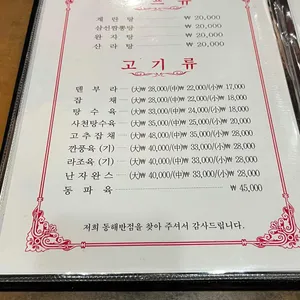 계 란 탕 ₩ 20,000
삼선짬뽕탕 ₩ 20,000
완 자 탕 ₩ 20,000
산 라 탕 ₩ 20,000
고 기 류
덴 뿌 라 (大)₩ 28,000/(中)₩ 22,000/(小)₩ 17,000
잡 채 (大)₩ 28,000/(中)₩ 22,000/(小)₩ 18,000
탕 수 육 (大)₩ 33,000/(中)₩ 24,000/(小)₩ 18,000
사천탕수육 (大)₩ 35,000/(中)₩ 25,000/(小)₩ 20,000
고추잡채 (大)₩ 48,000/(中)₩ 35,500/(小)₩ 28,000
깐풍육 (기) (大)₩ 40,000/(中)₩ 33,000/(小)₩ 28,000
라조육 (기) (大)₩ 40,000/(中)₩ 33,000/(小)₩ 28,000
난자완스 (大)₩ 40,000/(中)₩ 33,000/(小)₩ 28,000
동 파 육 ₩ 45,000
저희 동해반점을 찾아 주셔서 감사드립니다.